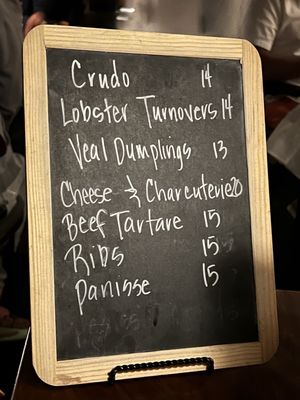 Crudo 14
Lobster Turnovers 14
Veal Dumplings 13
Cheese & Charcuterie 20
Beef Tartare 15
Ribs 15
Panisse 15